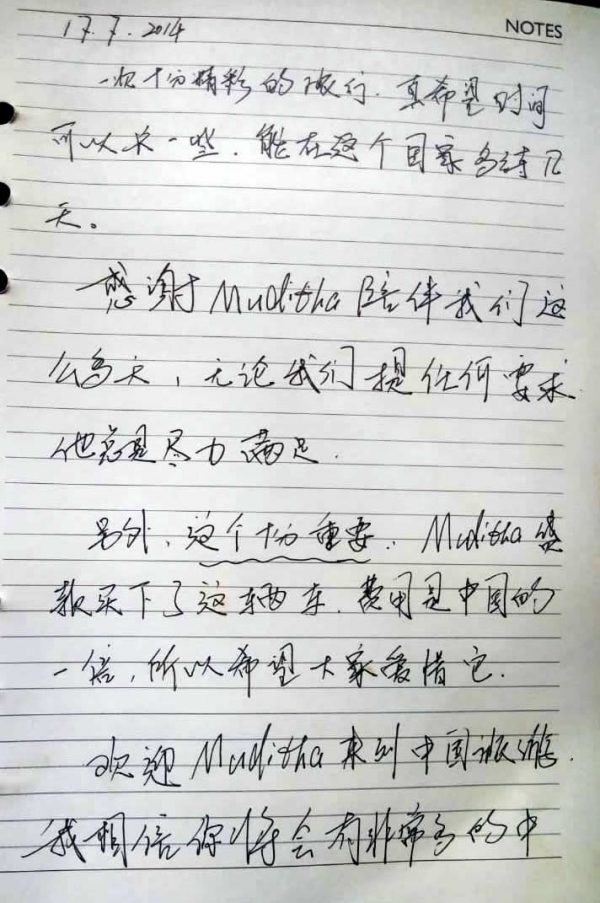 NOTES
17.7.2014
一次十分精彩的旅行. 真希望时间
可以长一些. 能在这个国家多待几
天。
感谢Muditha陪伴我们这
么多天, 无论我们提任何要求
他总是尽力满足.
另外, 这个十分重要. Muditha贷
款买下了这辆车. 费用是中国的
一倍, 所以希望大家爱惜它.
欢迎Muditha来到中国旅游.
我相信你将会有非常多的中